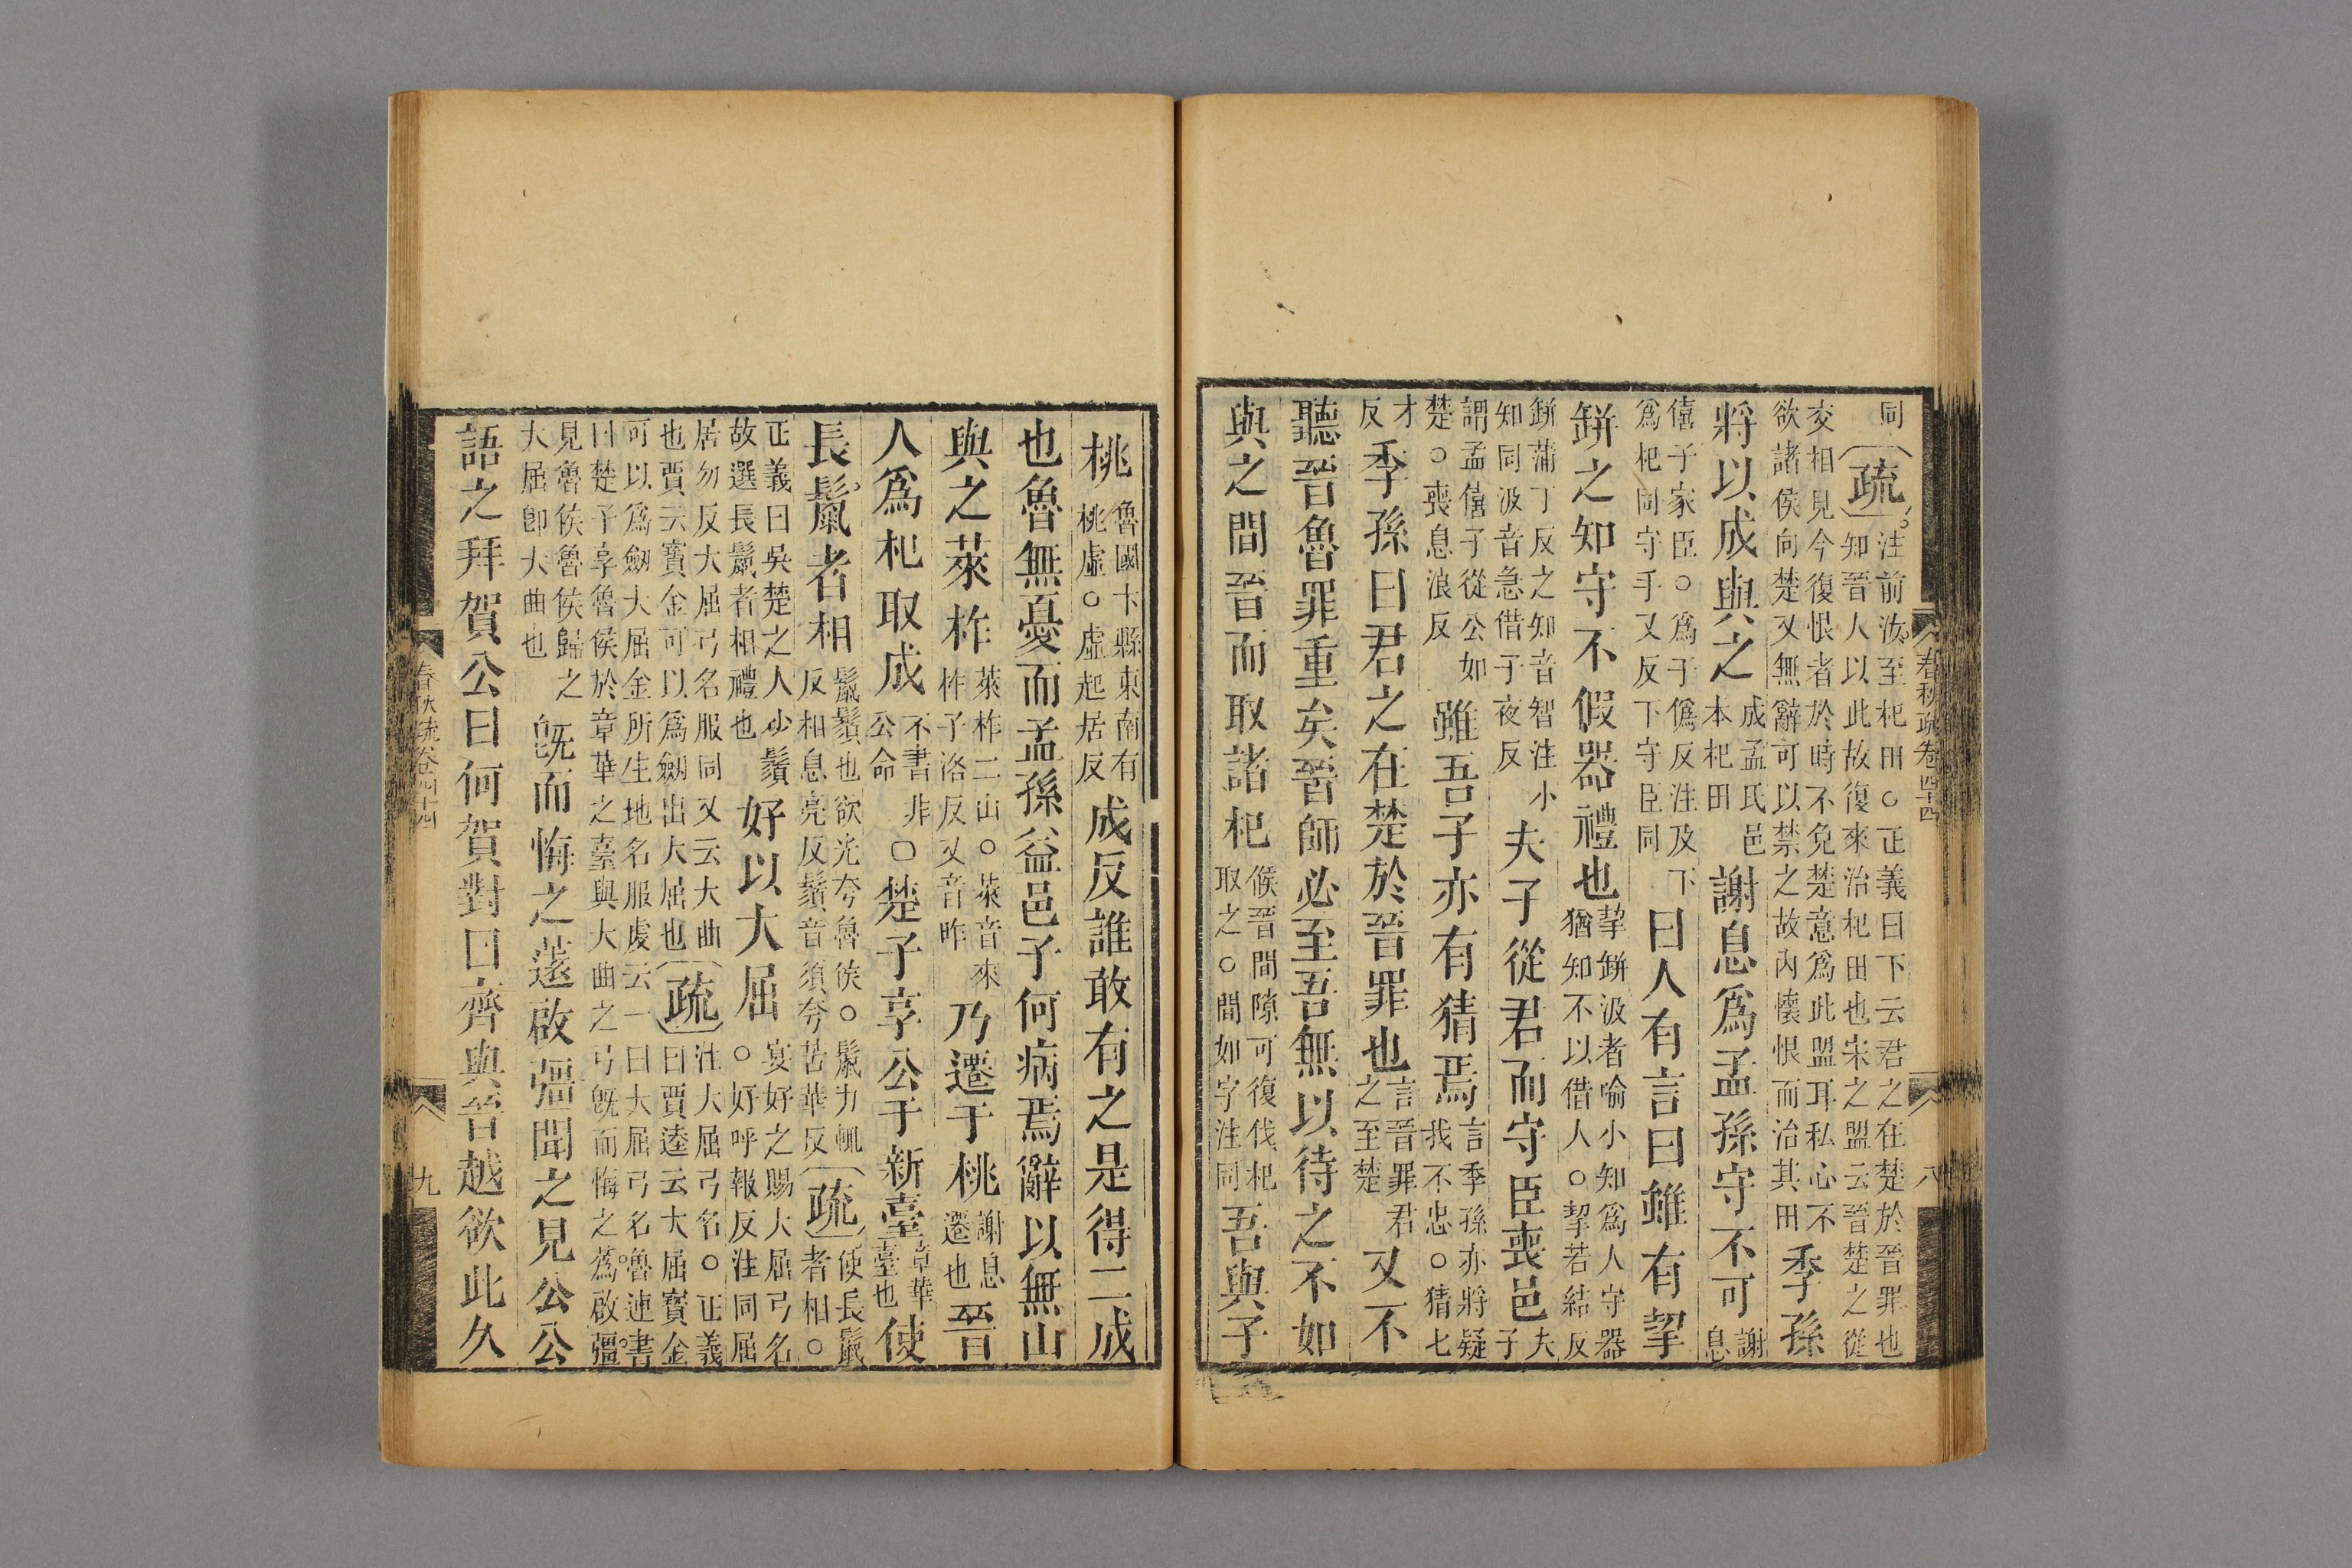 同疏注前汝至杞田○正義曰下云君之在楚於晉罪也知晉人以此故復來治杞田也宋之盟云晉楚之從
交相見今復恨者於時不免楚意爲此盟耳私心不欲諸侯向楚又無辭可以禁之故內懷恨而治其田季孫
將以成與之成孟氏邑本杞田謝息爲孟孫守不可謝息
僖子家臣○爲于僞反注及下爲杞同守手又反下守臣同曰人有言曰雖有挈
缾之知守不假器禮也挈缾汲者喻小知爲人守器猶知不以借人○挈若結反
缾蒲丁反之知音智注小知同汲音急借子夜反夫子從君而守臣喪邑夫子
謂孟僖子從公如楚○喪息浪反雖吾子亦有猜焉言季孫亦將疑我不忠○猜七
才反季孫曰君之在楚於晉罪也言晉罪君之至楚又不
聽晉魯罪重矣晉師必至吾無以待之不如
與之間晉而取諸杞候晉間隙可復伐杞取之○間如字注同吾與子
春秋疏卷四十四
八
桃魯國卞縣東南有桃虛○虛起居反成反誰敢有之是得二成
也魯無憂而孟孫益邑子何病焉辭以無山
與之萊柞萊柞二山○萊音來柞子洛反又音昨乃遷于桃謝息遷也晉
人爲杞取成不書非公命○楚子享公于新臺章華臺也使
長鬛者相鬛鬚也欲光夸魯侯○鬛力輒反相息亮反鬚音須夸苦華反疏使長鬛者相○
正義曰吳楚之人少鬚故選長鬛者相禮也好以大屈宴好之賜大屈弓名○好呼報反注同屈
居勿反大屈弓名服同又云大曲也賈云寶金可以爲劒出大屈也疏注大屈弓名○正義曰賈逵云大屈寶金
可以爲劒大屈金所生地名服虔云一曰大屈弓名魯連書曰楚子享魯侯於章華之臺與大曲之弓旣而悔之爲啟彊
見魯侯魯侯歸之大屈卽大曲也旣而悔之薳啟彊聞之見公公
語之拜賀公曰何賀對曰齊與晉越欲此久
春秋疏卷四十四
九